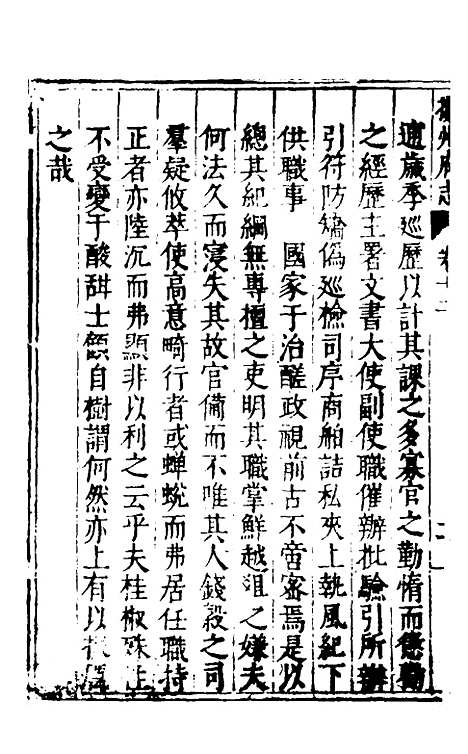 州府志 卷十二
逋歲季巡歷以計其課之多寡官之勤惰而懲勸
之經歷主署文書大使副使職催辦批驗引所辦
引符防矯偽巡檢司序商舶詰私夾上執風紀下
供職事 國家于治醝政視前古不啻密焉是以
總其紀綱無專擅之吏明其職掌鮮越俎之嫌夫
何法久而寖失其故官備而不唯其人錢穀之司
羣疑攸萃使高意畸行者或蟬蛻而弗居任職持
正者亦陸沉而弗顯非以利之云乎夫桂椒殊性
不受變于酸甜士顧自樹謂何然亦上有以
之哉